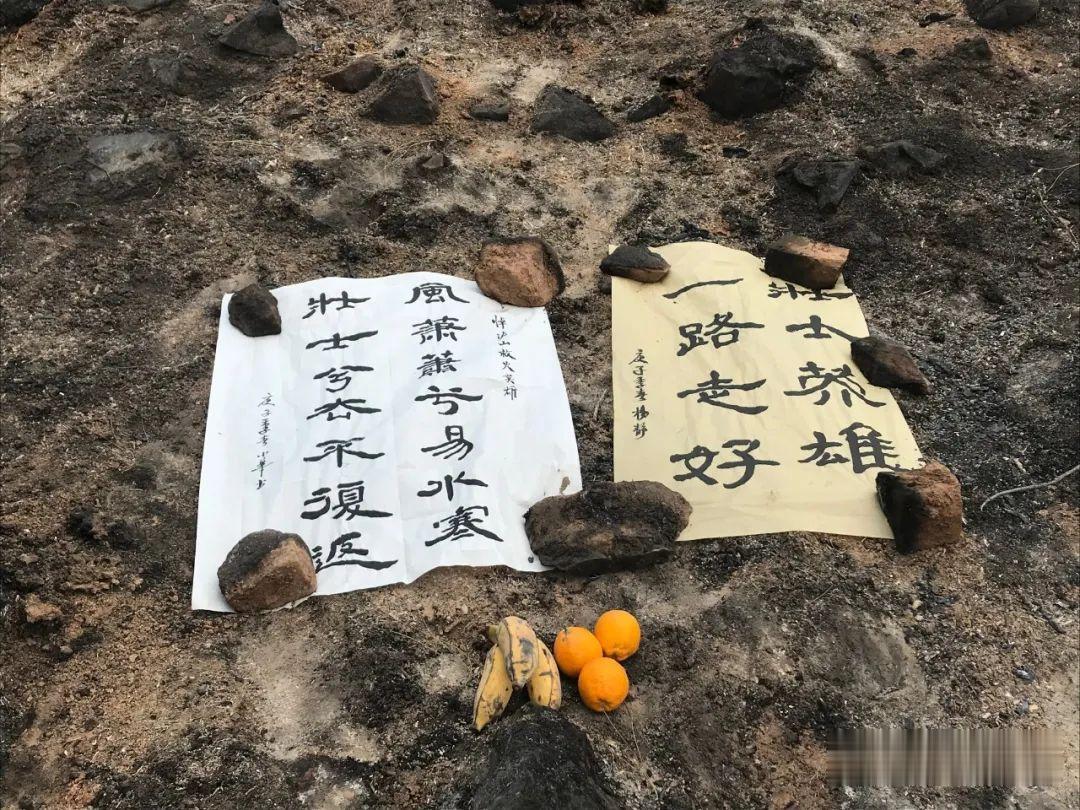 悼泸山救火英雄
風蕭蕭兮易水寒
壮士兮去不復返
庚子季春小華书
壮士英雄
一路走好
庚子季春楊静